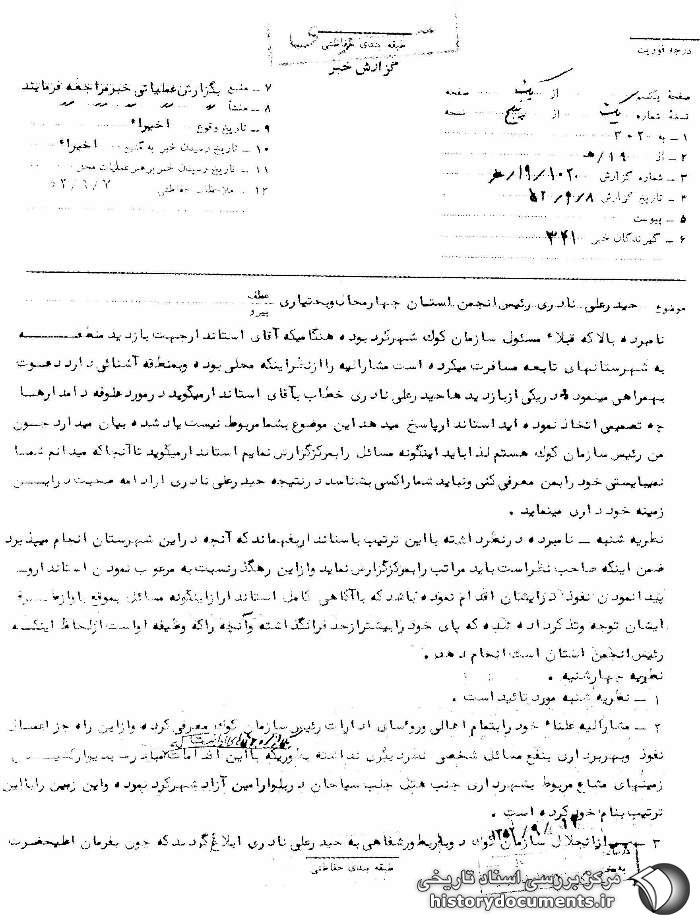 طبقه بندی حفاظتی
گزارش خبر
درجه فوریت
صفحه یکم از یک صفحه
نسخه شماره یک از پنج نسخه
۱ ـ به ۳۰۲
۲ ـ از ۱۹/ﻫ
۳ ـ شماره گزارش ۱۰۲۰/۱۹/ﻫ
۴ ـ تاریخ گزارش ۵۲/۹/۸
۵ ـ پیوست
۶ ـ گیرندگان خبر ۳۴۱
۷ ـ منبع بگزارش عملیاتی خبر مراجعه فرمایند
۸ ـ منشأ " " " " "
۹ ـ تاریخ وقوع اخیراً
۱۰ ـ تاریخ رسیدن خبر به منبع اخیراً
۱۱ ـ تاریخ رسیدن خبر برهبر عملیات محل
۱۲ ـ ملاحظات حفاظتی
موضوع حیدرعلی نادری رئیس انجمن استان چهارمحال وبختیاری عطف پیرو
نامبرده بالا که قبلاً مسئول سازمان کوک شهرکرد بوده هنگامیکه آقای استاندار جهت بازدید منطقه
به شهرستانهای تابعه مسافرت میکرده است مشارالیه را ازنظر اینکه محلی بوده وبمنطقه آشنائی دارد دعوت
بهمراهی مینمود در یکی ازبازدیدها حیدرعلی نادری خطاب بآقای استاندار میگوید درمورد علوفه دامدارها
چه تصمیمی اتخاذ نموده اید استاندار پاسخ میدهد این موضوع بشما مربوط نیست یادشده بیان میدارد چون
من رئیس سازمان کوک هستم لذا باید اینگونه مسائل را بمرکز گزارش نمایم استاندار میگوید تا آنجا که میدانم شما
نمیبایستی خود را بمن معرفی کنی ونباید شما را کسی بشناسد درنتیجه حیدرعلی نادری از ادامه صحبت دراین
زمینه خودداری مینماید .
نظریه شنبه ـ نامبرده درنظر داشته با این ترتیب باستاندار بفهماند که آنچه دراین شهرستان انجام میپذیرد
ضمن اینکه صاحب نظر است باید مراتب را بمرکز گزارش نماید وازاین رهگذر نسبت به مرعوب نمودن استاندار و
پیدا نمودن نفوذ در ایشان اقدام نموده باشد که با آگاهی کامل استاندار از اینگونه مسائل بموقع
ایشان توجه وتذکر داده شده که پای خود را بیشتر ازحد فرانگذاشته وآنچه را که وظیفه اواست ازلحاظ اینکه
رئیس انجمن استان است انجام دهد .
نظریه چهارشنبه .
۱ ـ نظریه شنبه مورد تائید است .
۲ ـ مشارالیه علناً خود را بتمام اهالی وروسای ادارات رئیس سازمان کوک معرفی کرده وازاین راه جز اعمال
نفوذ وبهره برداری بنفع مسائل شخصی نظر دیگری نداشته بطوریکه با این اقدامات مبادرت بدیوارکشی
زمینهای مشاع مربوط بشهرداری جنب هتل جلب سیاحان دربلوار امین آزاد شهرکرد نموده واین زمین را باین
ترتیب بنام خود کرده است .
۳ ـ پس ازانحلال سازمان کوک دوبار بطورشفاهی به حیدرعلی نادری ابلاغ گردید که چون بفرمان اعلیحضرت
طبقه بندی حفاظتی
مرکز بررسی اسناد تاریخی
historydocuments.ir